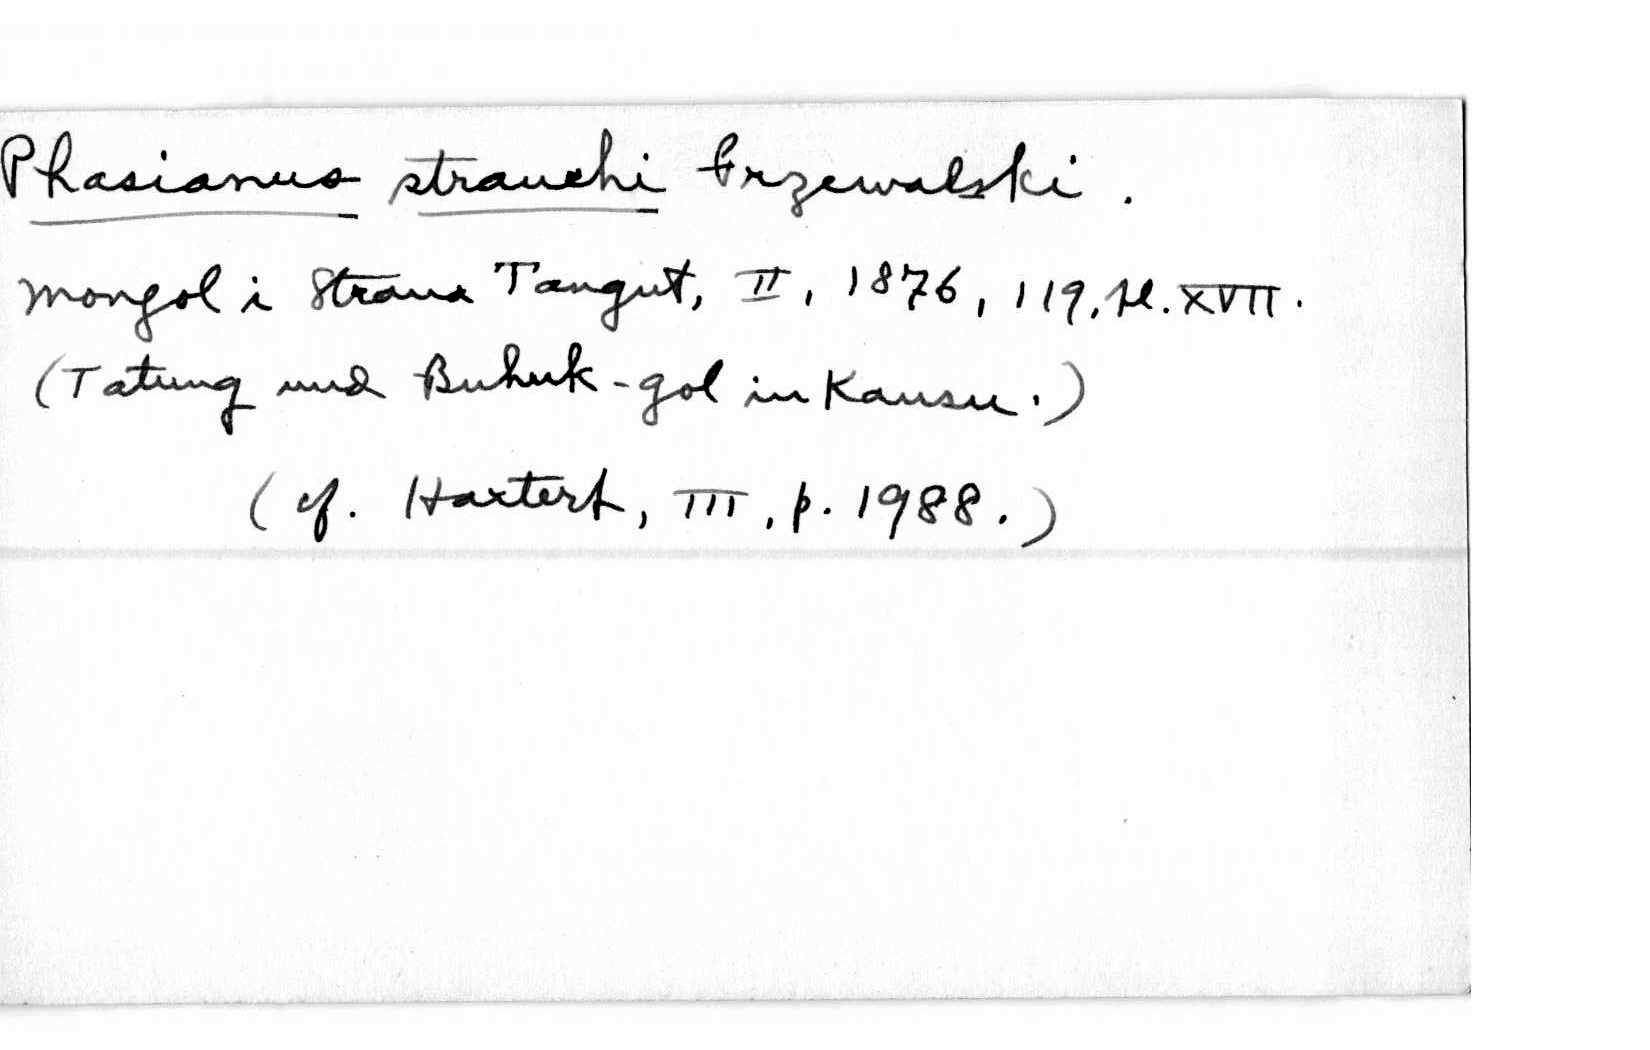 Phasianus strauchi Przewalski.
Mongol i Strana Tangut, II, 1876, 119, pl. XVII.
(Tatung und Buhuk-gol in Kansu.)
(cf. Hartert, III, p. 1988.)